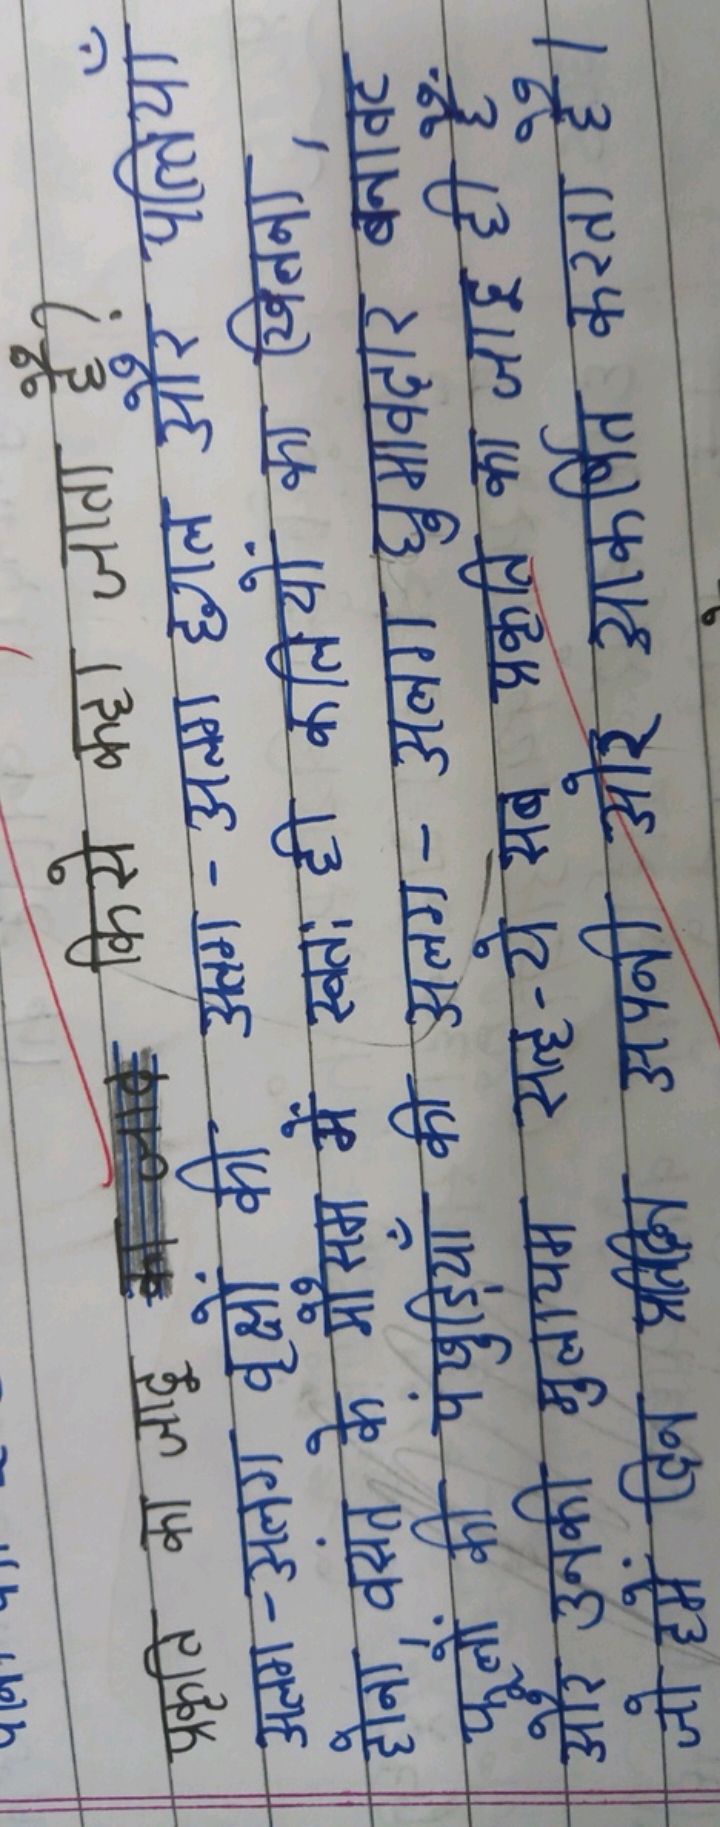 प्रकृति का जादू किसे कहा जाता है?
अलग-अलग वृक्षों की अलग-अलग छाल और पत्तियाँ
होना, वसंत के मौसम में स्वतः ही कलियों का खिलना,
फूलों की पंखुड़ियाँ की अलग-अलग घुमावदार बनावट
और उनकी मुलायम सतह-ये सब प्रकृति का जादू ही है
जो हमें दिन प्रतिदिन अपनी ओर आकर्षित करता है।